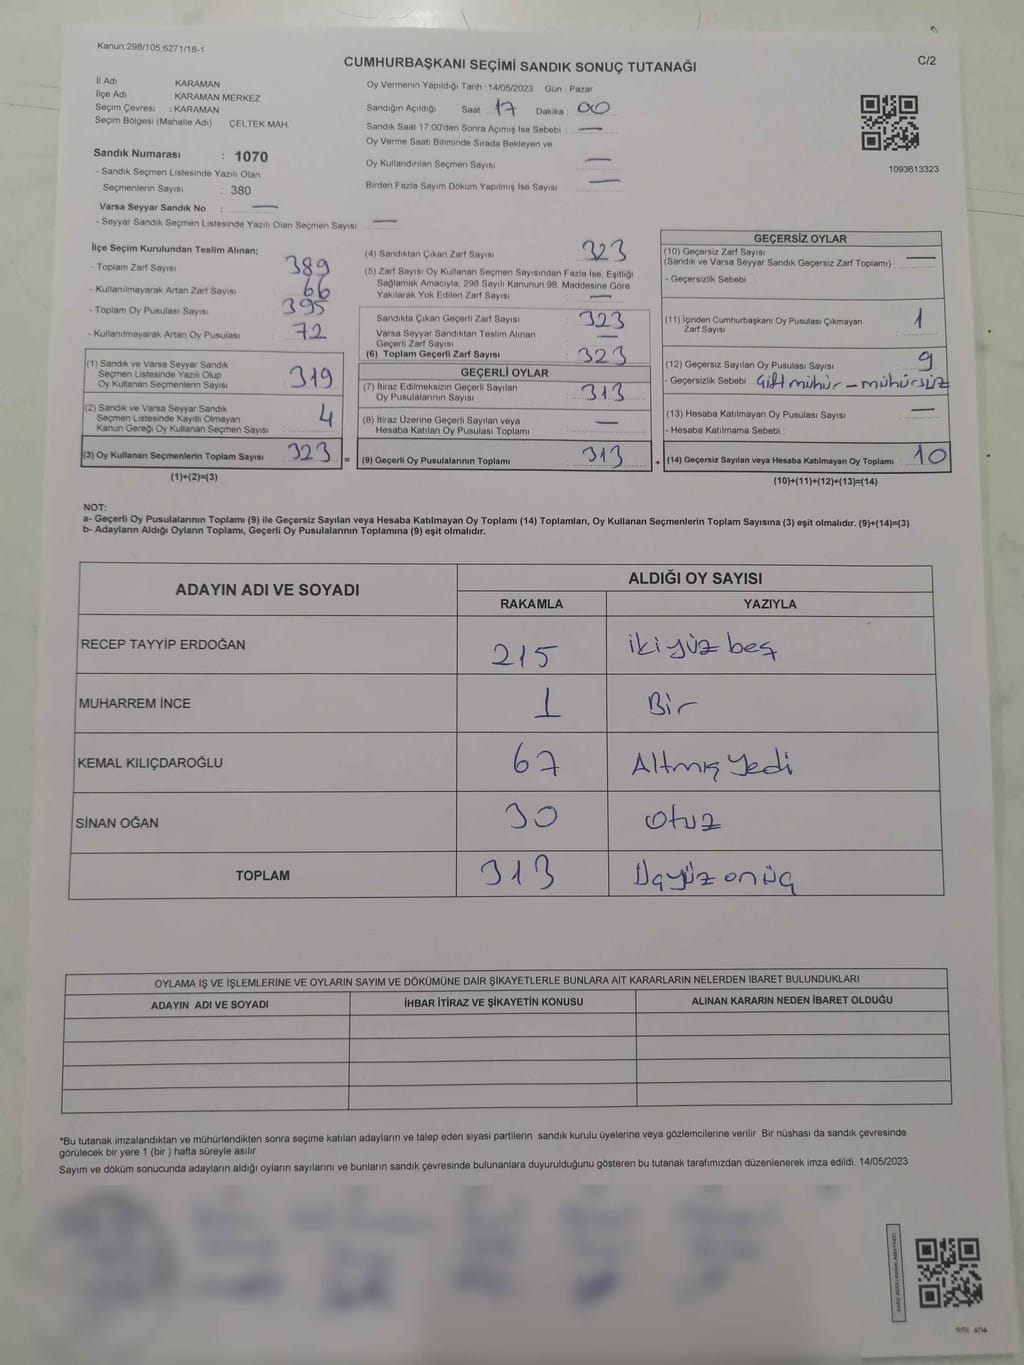 Kanun:298/105;6271/18-1
C/2
CUMHURBAŞKANI SEÇİMİ SANDIK SONUÇ TUTANAĞI
İl Adı KARAMAN
İlçe Adı KARAMAN MERKEZ
Seçim Çevresi : KARAMAN
Seçim Bölgesi (Mahalle Adı) ÇELTEK MAH.
Sandık Numarası : 1070
- Sandık Seçmen Listesinde Yazılı Olan
Seçmenlerin Sayısı : 380
Varsa Seyyar Sandık No : —
- Seyyar Sandık Seçmen Listesinde Yazılı Olan Seçmen Sayısı: —
Oy Vermenin Yapıldığı Tarih :14/05/2023 Gün : Pazar
Sandığın Açıldığı Saat 17 Dakika : 00
Sandık Saat 17:00'den Sonra Açımış İse Sebebi —
Oy Verme Saati Bitiminde Sırada Bekleyen ve
Oy Kullandırılan Seçmen Sayısı —
Birden Fazla Sayım Döküm Yapılmış İse Sayısı : —
1093613323
İlçe Seçim Kurulundan Teslim Alınan;
- Toplam Zarf Sayısı 389
- Kullanılmayarak Artan Zarf Sayısı 66
- Toplam Oy Pusulası Sayısı 395
- Kullanılmayarak Artan Oy Pusulası 72
(1) Sandık ve Varsa Seyyar Sandık
Seçmen Listesinde Yazılı Olup
Oy Kullanan Seçmenlerin Sayısı 319
(2) Sandık ve Varsa Seyyar Sandık
Seçmen Listesinde Kayıtlı Olmayan
Kanun Gereği Oy Kullanan Seçmen Sayısı 4
(3) Oy Kullanan Seçmenlerin Toplam Sayısı 323 =
(1)+(2)=(3)
(4) Sandıktan Çıkan Zarf Sayısı 323
(5) Zarf Sayısı Oy Kullanan Seçmen Sayısından Fazla İse, Eşitliği
Sağlamak Amacıyla, 298 Sayılı Kanunun 98. Maddesine Göre
Yakılarak Yok Edilen Zarf Sayısı : —
Sandıkta Çıkan Geçerli Zarf Sayısı 323
Varsa Seyyar Sandıktan Teslim Alınan
Geçerli Zarf Sayısı —
(6) Toplam Geçerli Zarf Sayısı 323
GEÇERLİ OYLAR
(7) İtiraz Edilmeksizin Geçerli Sayılan
Oy Pusulalarının Sayısı 313
(8) İtiraz Üzerine Geçerli Sayılan veya
Hesaba Katılan Oy Pusulası Toplamı —
(9) Geçerli Oy Pusulalarının Toplamı 313 +
GEÇERSİZ OYLAR
(10) Geçersiz Zarf Sayısı
(Sandık ve Varsa Seyyar Sandık Geçersiz Zarf Toplamı) : —
- Geçersizlik Sebebi :
(11) İçinden Cumhurbaşkanı Oy Pusulası Çıkmayan
Zarf Sayısı 1
(12) Geçersiz Sayılan Oy Pusulası Sayısı 9
- Geçersizlik Sebebi : Çift mühür - mühürsüz
(13) Hesaba Katılmayan Oy Pusulası Sayısı —
- Hesaba Katılmama Sebebi :
(14) Geçersiz Sayılan veya Hesaba Katılmayan Oy Toplamı : 10
(10)+(11)+(12)+(13)=(14)
NOT:
a- Geçerli Oy Pusulalarının Toplamı (9) ile Geçersiz Sayılan veya Hesaba Katılmayan Oy Toplamı (14) Toplamları, Oy Kullanan Seçmenlerin Toplam Sayısına (3) eşit olmalıdır. (9)+(14)=(3)
b- Adayların Aldığı Oyların Toplamı, Geçerli Oy Pusulalarının Toplamına (9) eşit olmalıdır.
ADAYIN ADI VE SOYADI
ALDIĞI OY SAYISI
RAKAMLA YAZIYLA
RECEP TAYYİP ERDOĞAN 215 ikiyüz beş
MUHARREM İNCE 1 Bir
KEMAL KILIÇDAROĞLU 67 Altmış Yedi
SİNAN OĞAN 30 otuz
TOPLAM 313 Üçyüz onüç
OYLAMA İŞ VE İŞLEMLERİNE VE OYLARIN SAYIM VE DÖKÜMÜNE DAİR ŞİKAYETLERLE BUNLARA AİT KARARLARIN NELERDEN İBARET BULUNDUKLARI
ADAYIN ADI VE SOYADI İHBAR İTİRAZ VE ŞİKAYETİN KONUSU ALINAN KARARIN NEDEN İBARET OLDUĞU
*Bu tutanak imzalandıktan ve mühürlendikten sonra seçime katılan adayların ve talep eden siyasi partilerin sandık kurulu üyelerine veya gözlemcilerine verilir. Bir nüshası da sandık çevresinde
görülecek bir yere 1 (bir ) hafta süreyle asılır.
Sayım ve döküm sonucunda adayların aldığı oyların sayılarını ve bunların sandık çevresinde bulunanlara duyurulduğunu gösteren bu tutanak tarafımızdan düzenlenerek imza edildi. 14/05/2023